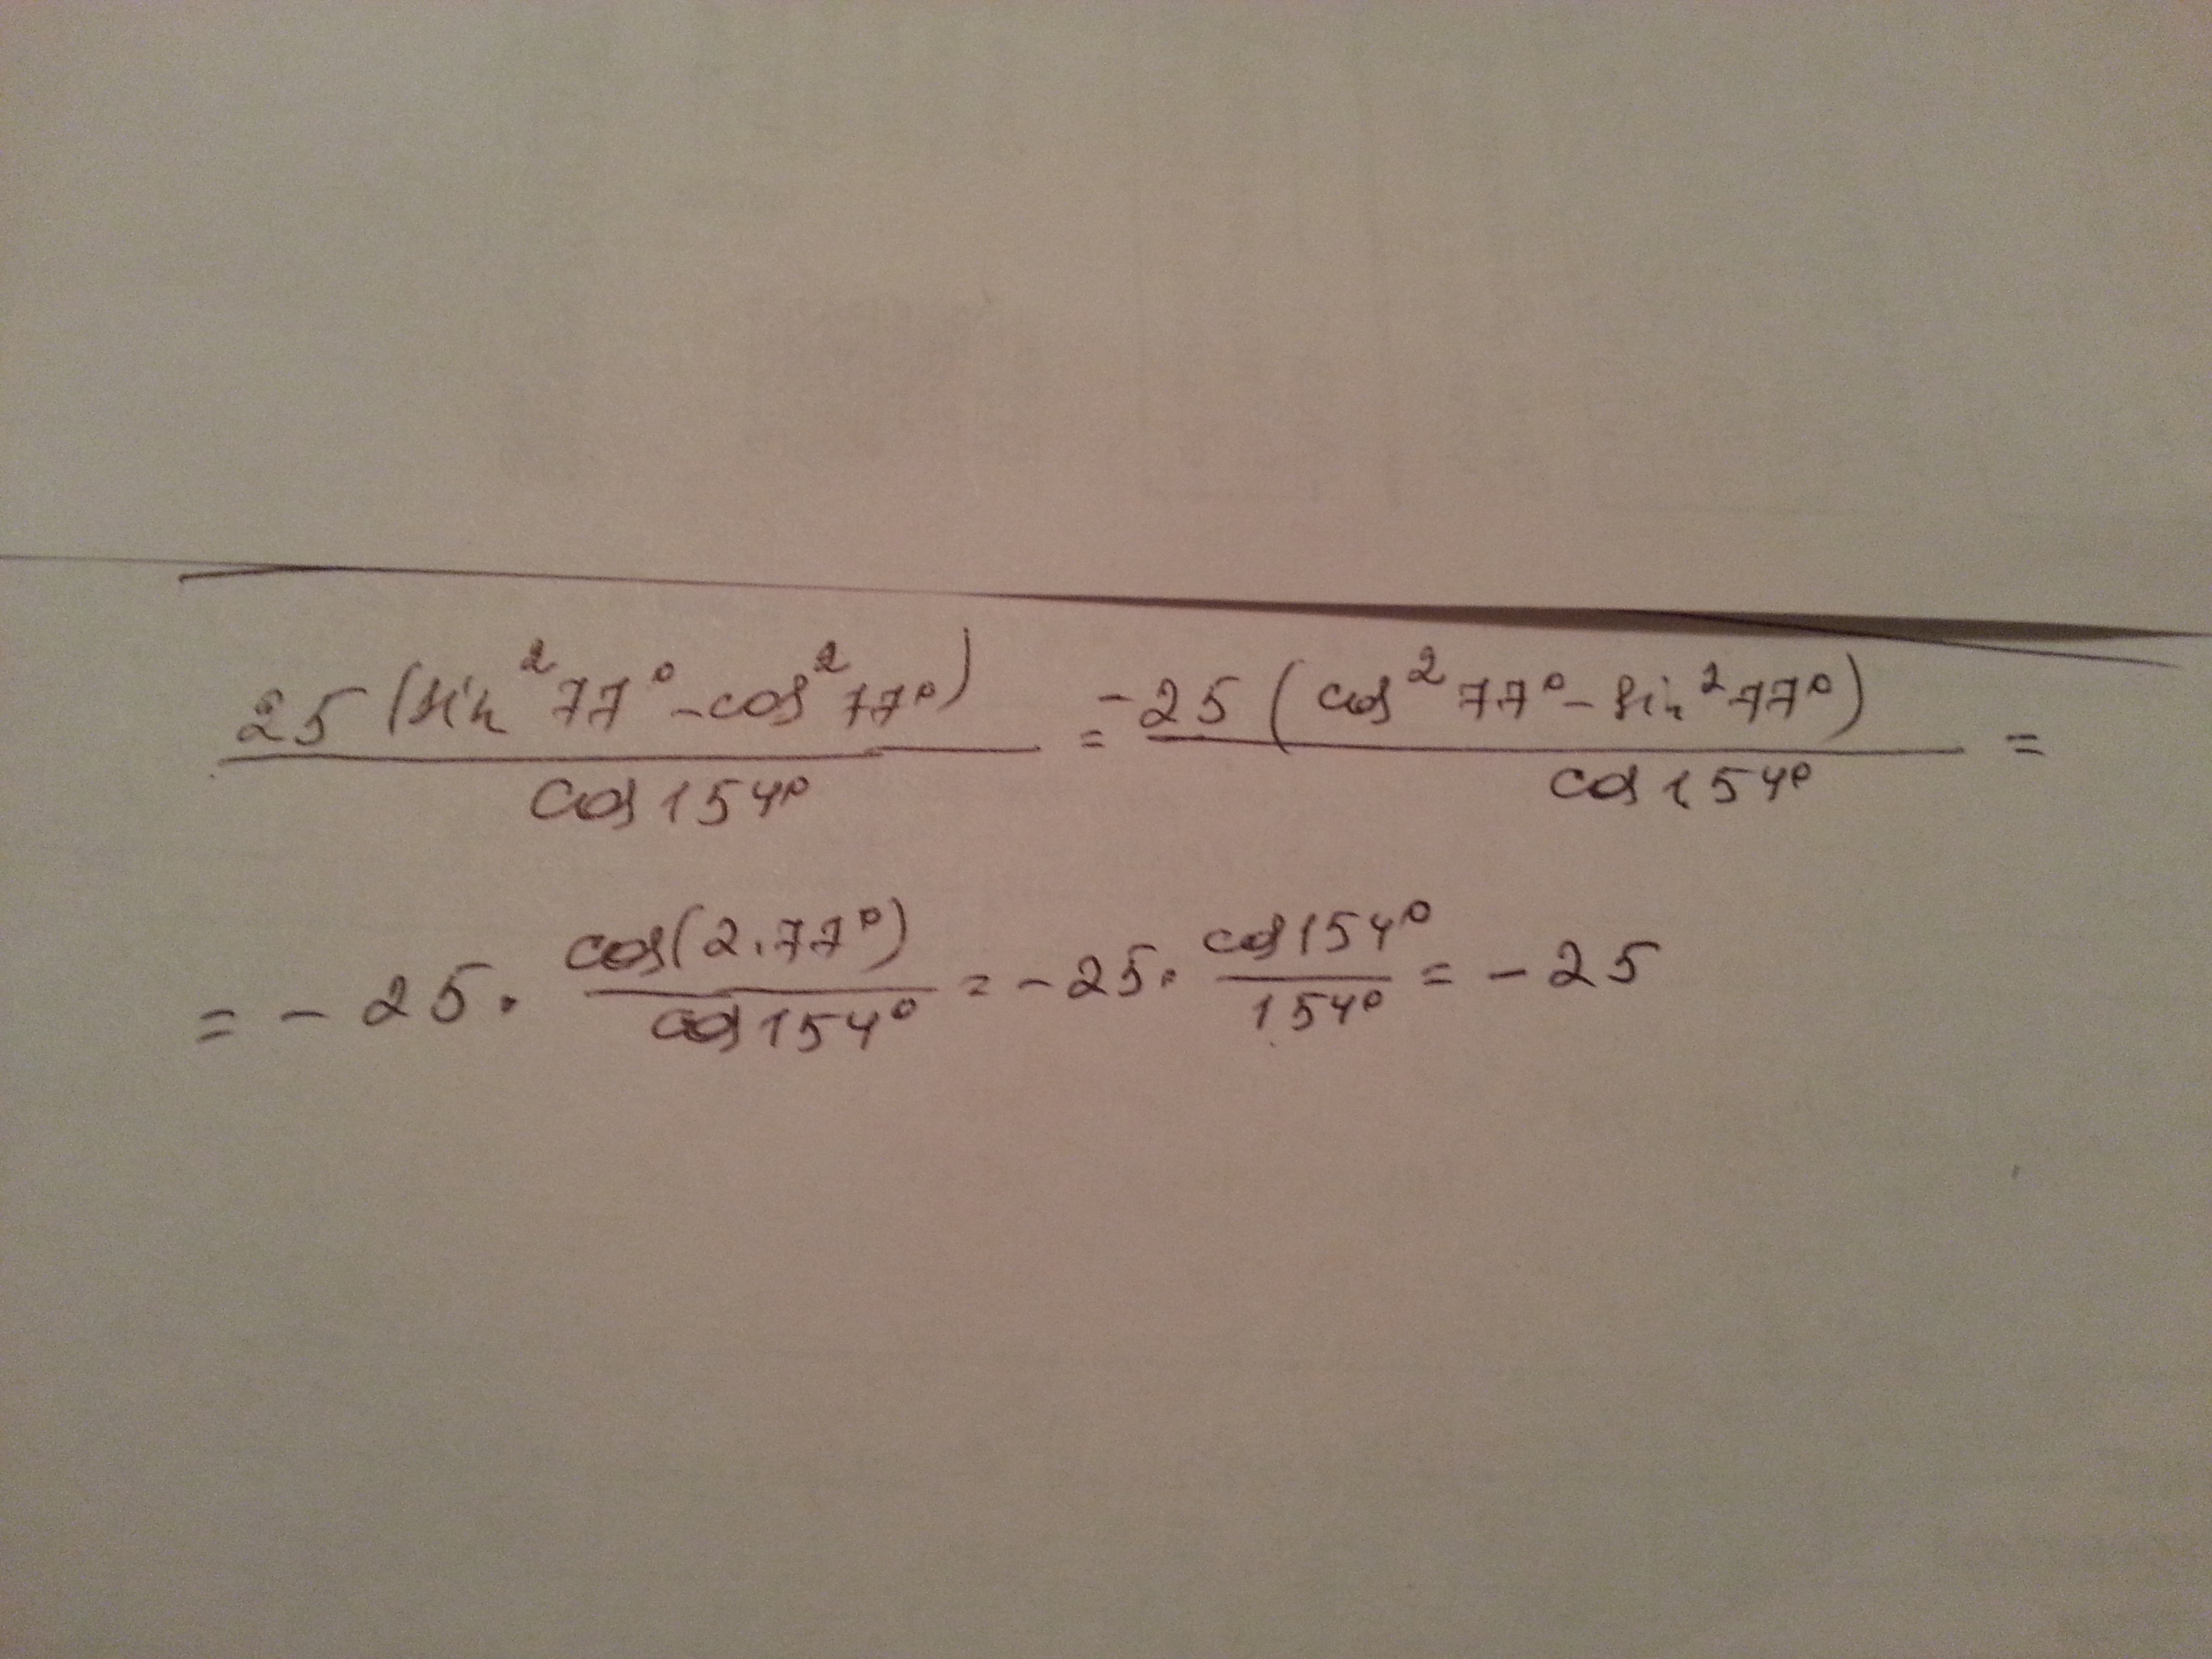 25 (sin²77° - cos²77°) / cos 154° = -25 (cos²77° - sin²77°) / cos 154° =
= - 25 · cos(2·77°) / cos 154° = - 25 · cos 154° / 154° = - 25